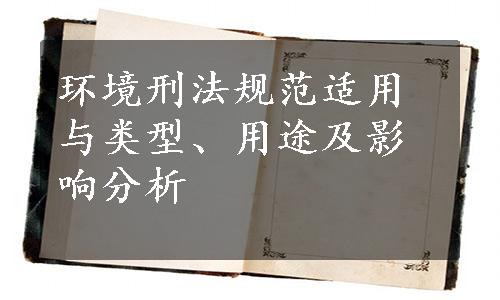 环境刑法规范适用
与类型、用途及影
响分析